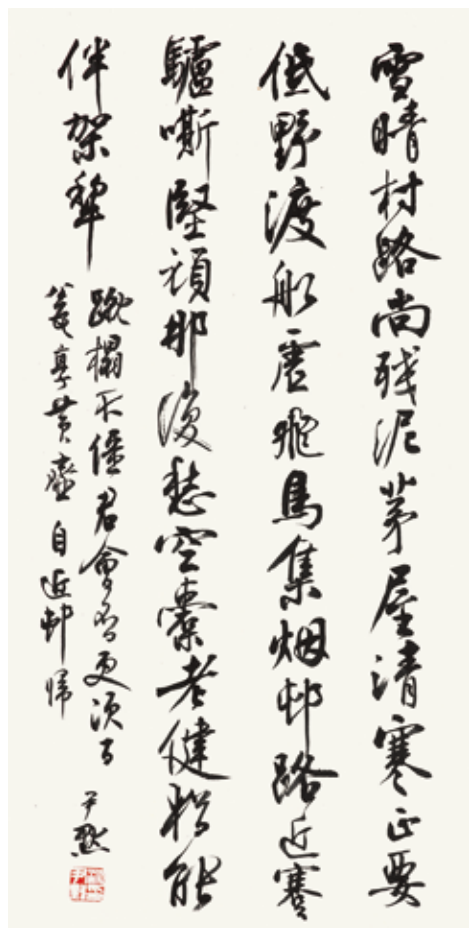 雪晴村路尚残泥茅屋清寒正要
低野渡船虚飛鳥集烟邨路近蹇
驢嘶堅頑那復愁空橐老健猶能
伴架犂
跪榻不僵君會否更須百
甕享黄虀 自近邨歸
尹默